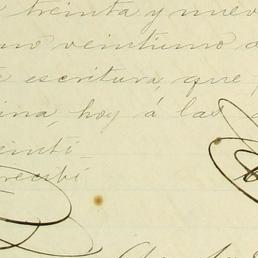 treinta y nuev
mo veintiuno d
escritura, que
ina, hoy á las
enti
recibí